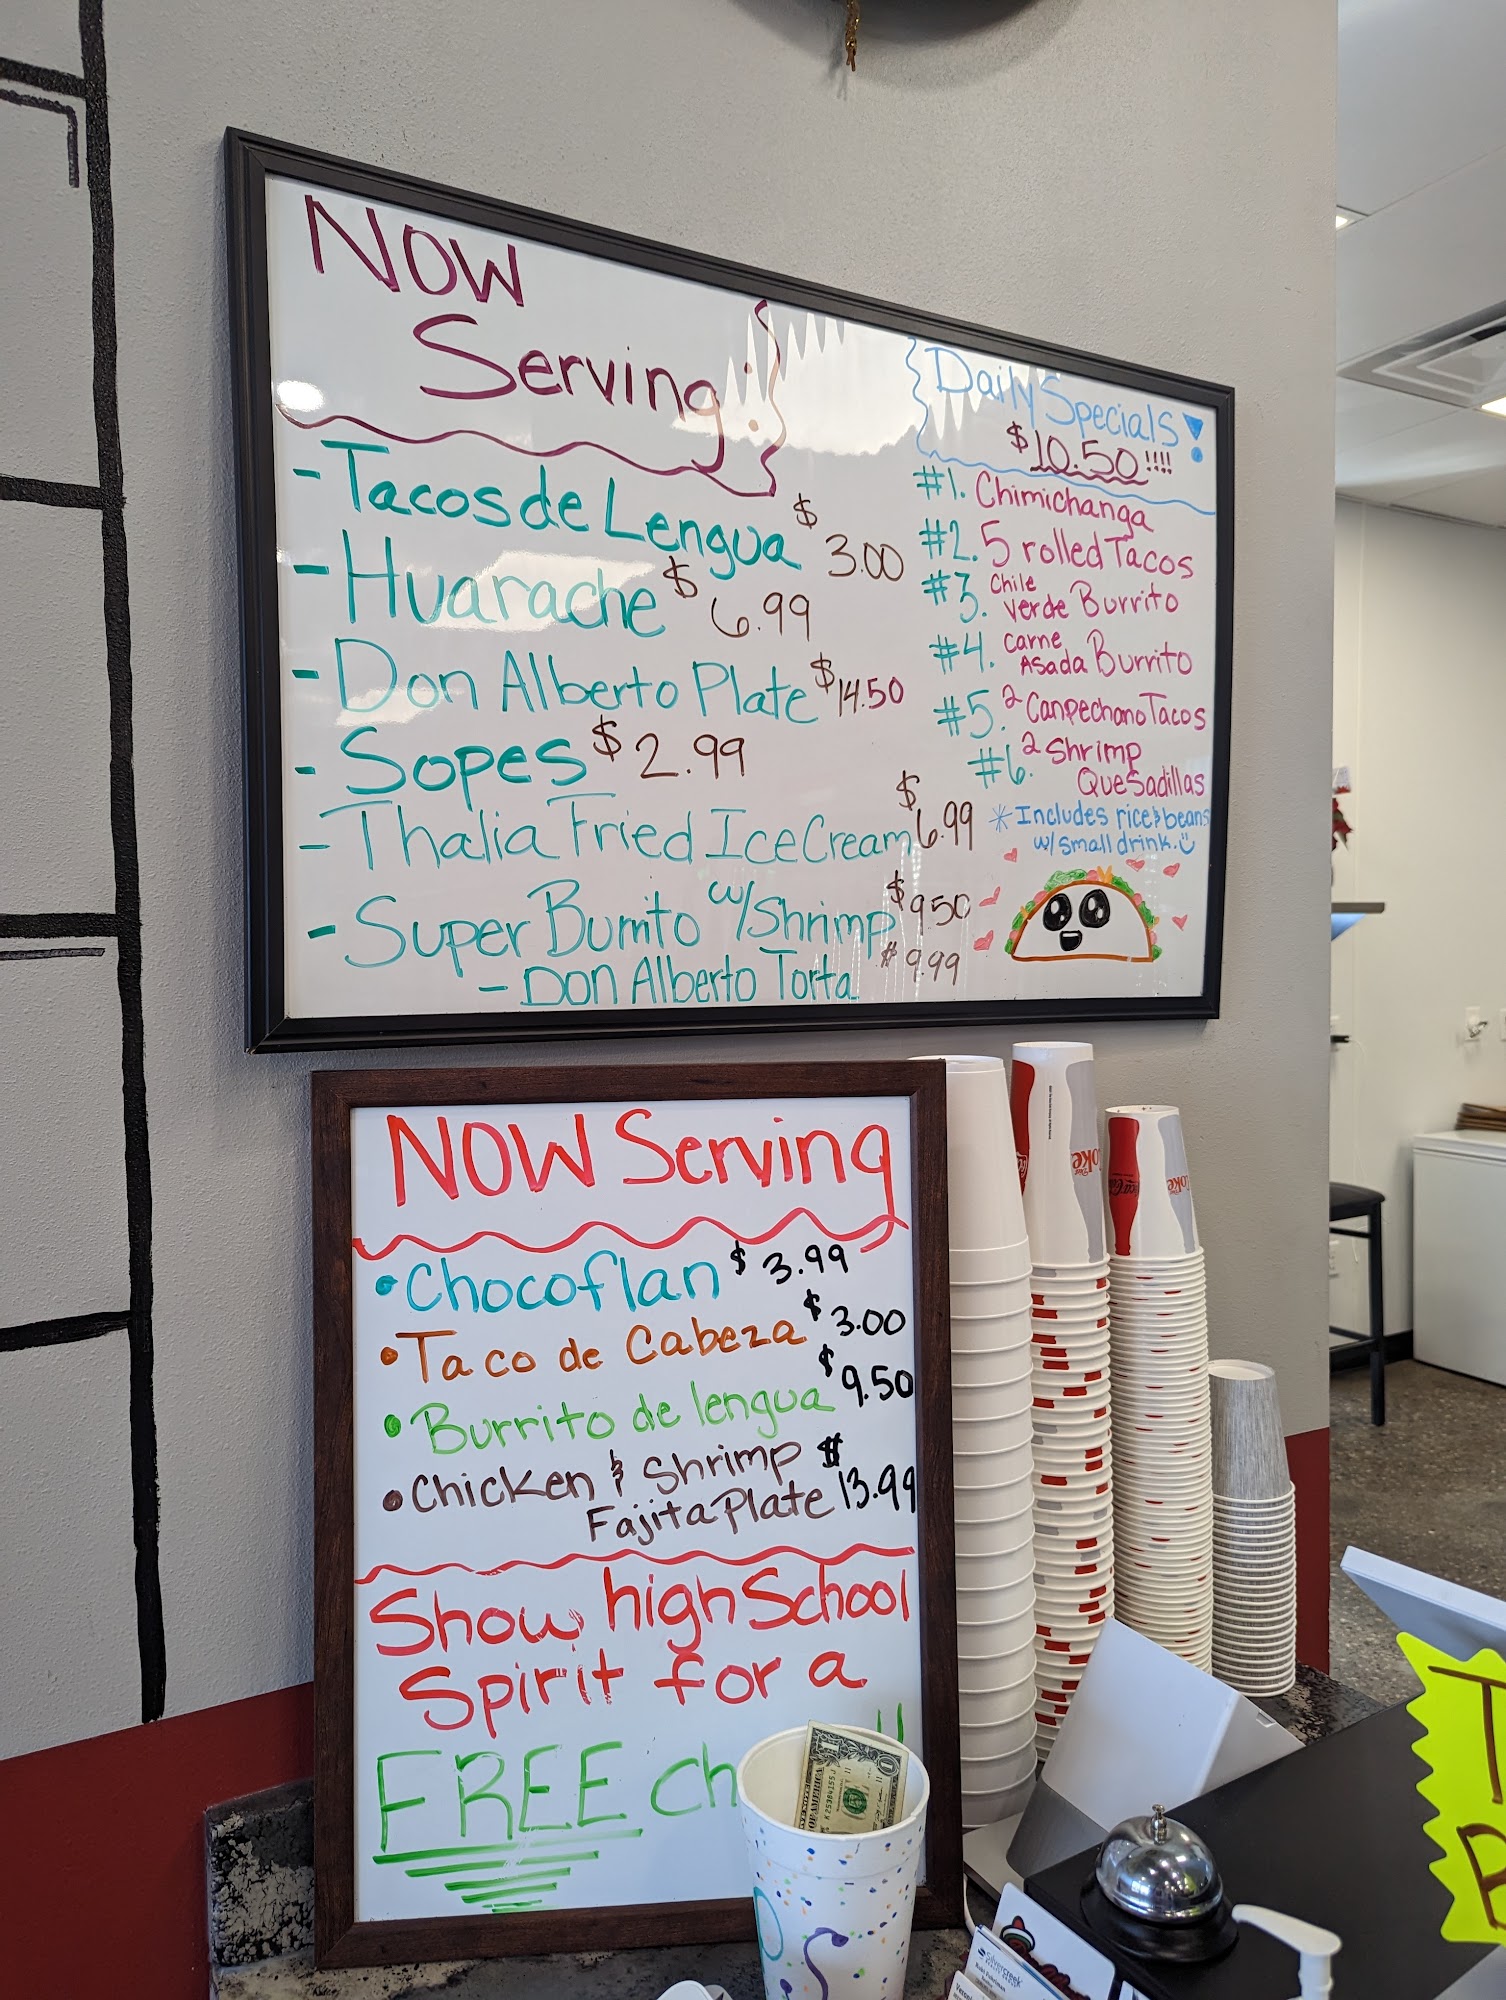 NOW
Serving:
- Tacos de Lengua $3.00
- Huarache $6.99
- Don Alberto Plate $14.50
- Sopes $2.99
- Thalia Fried Ice Cream $6.99
- Super Burrito w/Shrimp $9.50
- Don Alberto Torta $9.99
Daily Specials!
$10.50!!!!
#1. Chimichanga
#2. 5 rolled Tacos
#3. Chile Verde Burrito
#4. Carne Asada Burrito
#5. 2 Canpechano Tacos
#6. 2 Shrimp
Quesadillas
*Includes rice & beans
w/ small drink.
NOW Serving
• Chocoflan $3.99
• Taco de Cabeza $3.00
• Burrito de lengua $9.50
• Chicken & Shrimp $
Fajita Plate 13.99
Show high School
Spirit for a
FREE
Coke
Coke
Silvercreek